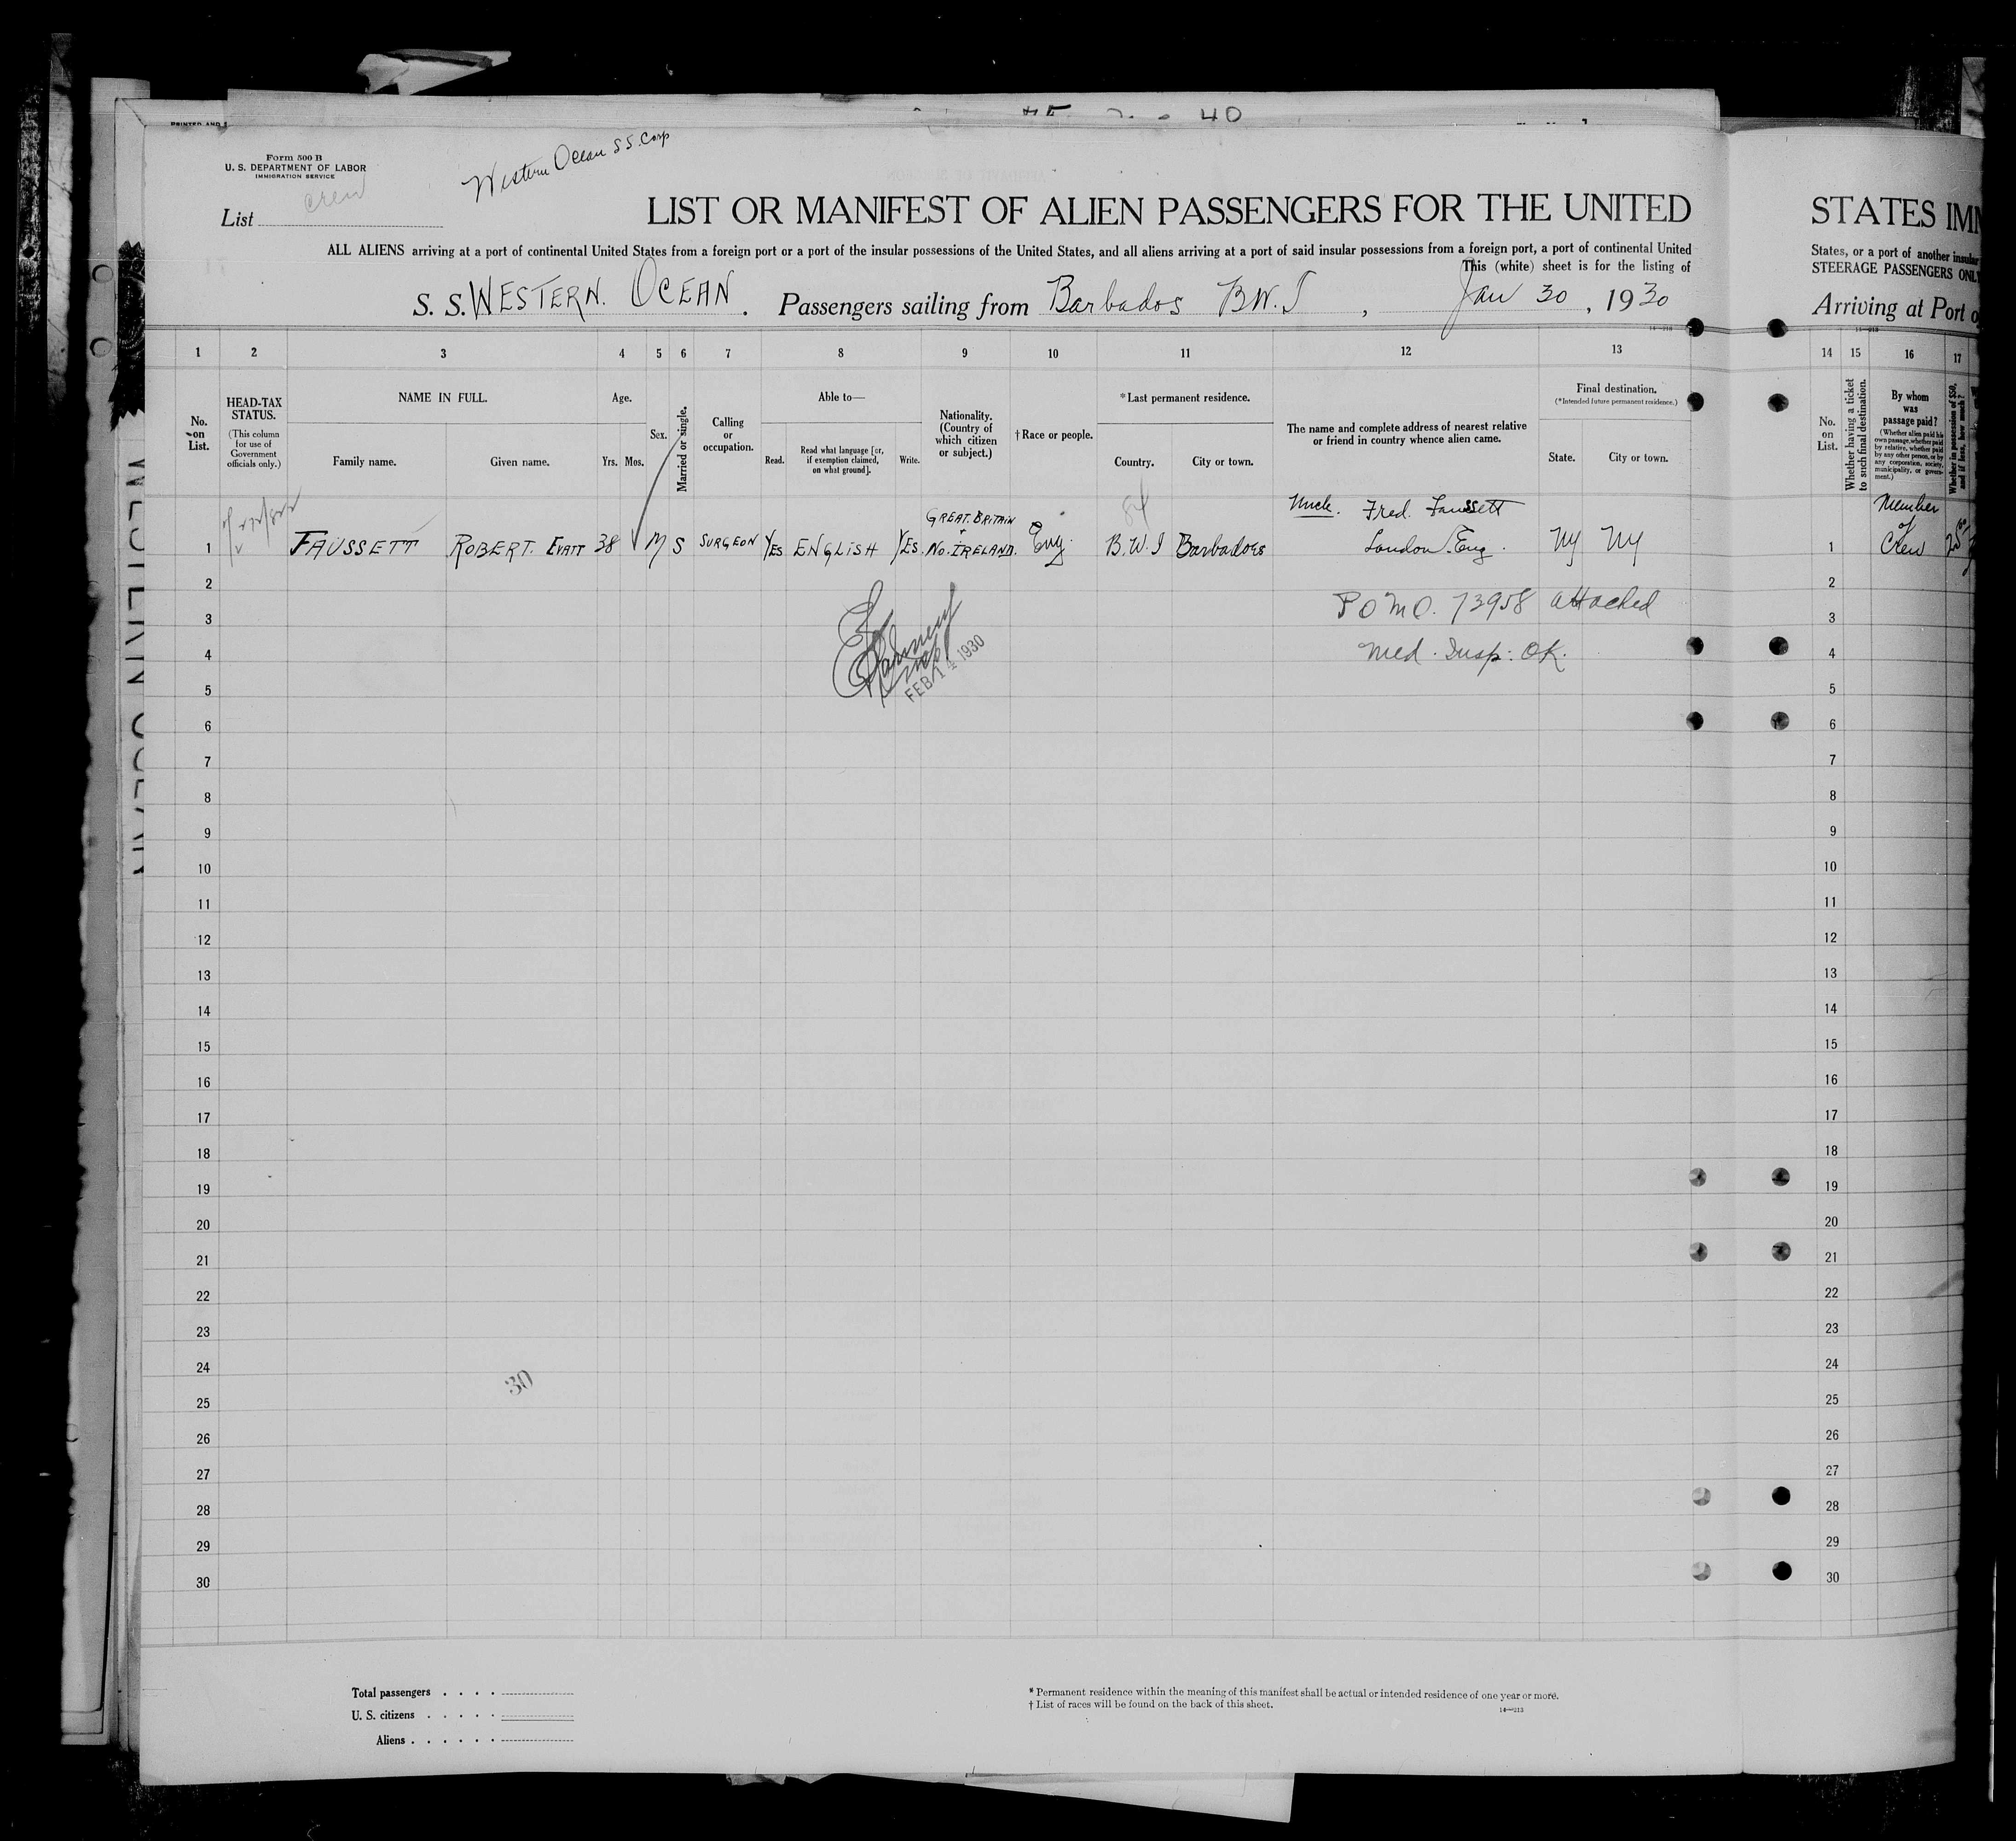 40
PRINTED AND
Form 500 B
U. S. DEPARTMENT OF LABOR
IMMIGRATION SERVICE
Western Ocean S S. Corp
List crew
LIST OR MANIFEST OF ALIEN PASSENGERS FOR THE UNITED
ALL ALIENS arriving at a port of continental United States from a foreign port or a port of the insular possessions of the United States, and all aliens arriving at a port of said insular possessions from a foreign port, a port of continental United
This (white) sheet is for the listing of
S. S. WESTERN. OCEAN. Passengers sailing from Barbados B.W.I , Jan 30, 1930
1 2 3 4 5 6 7 8 9 10 11 12 13
No. on List.
HEAD-TAX STATUS.
(This column for use of Government officials only.)
NAME IN FULL.
Family name. Given name.
Age.
Yrs. Mos.
Sex.
Married or single.
Calling or occupation.
Able to—
Read. Read what language [or, if exemption claimed, on what ground]. Write.
Nationality. (Country of which citizen or subject.)
†Race or people.
*Last permanent residence.
Country. City or town.
The name and complete address of nearest relative or friend in country whence alien came.
Final destination.
(*Intended future permanent residence.)
State. City or town.
1 FAUSSETT ROBERT. EVATT 38 M S SURGEON YES ENGLISH YES. GREAT. BRITAIN + NO. IRELAND. Eng. B.W.I Barbadoes Uncle. Fred. Faussett London. Eng. NY NY
2
3 73958 attached
4 Med. Insp: OK.
FEB 14 1930
5
6
7
8
9
10
11
12
13
14
15
16
17
18
19
20
21
22
23
24
30
25
26
27
28
29
30
Total passengers . . . .
U. S. citizens . . . . .
Aliens . . . . . .
* Permanent residence within the meaning of this manifest shall be actual or intended residence of one year or more.
† List of races will be found on the back of this sheet.
14—213
STATES IM
States, or a port of another insular
STEERAGE PASSENGERS ONL
Arriving at Port o
14 15 16 17
No. on List.
Whether having a ticket to such final destination.
By whom was passage paid?
(Whether alien paid his own passage, whether paid by relative, whether paid by any other person, or by any corporation, society, municipality, or government.)
Whether in possession of $50, and if less, how much?
1 Member of Crew
2
3
4
5
6
7
8
9
10
11
12
13
14
15
16
17
18
19
20
21
22
23
24
25
26
27
28
29
30
WESTERN OCEAN